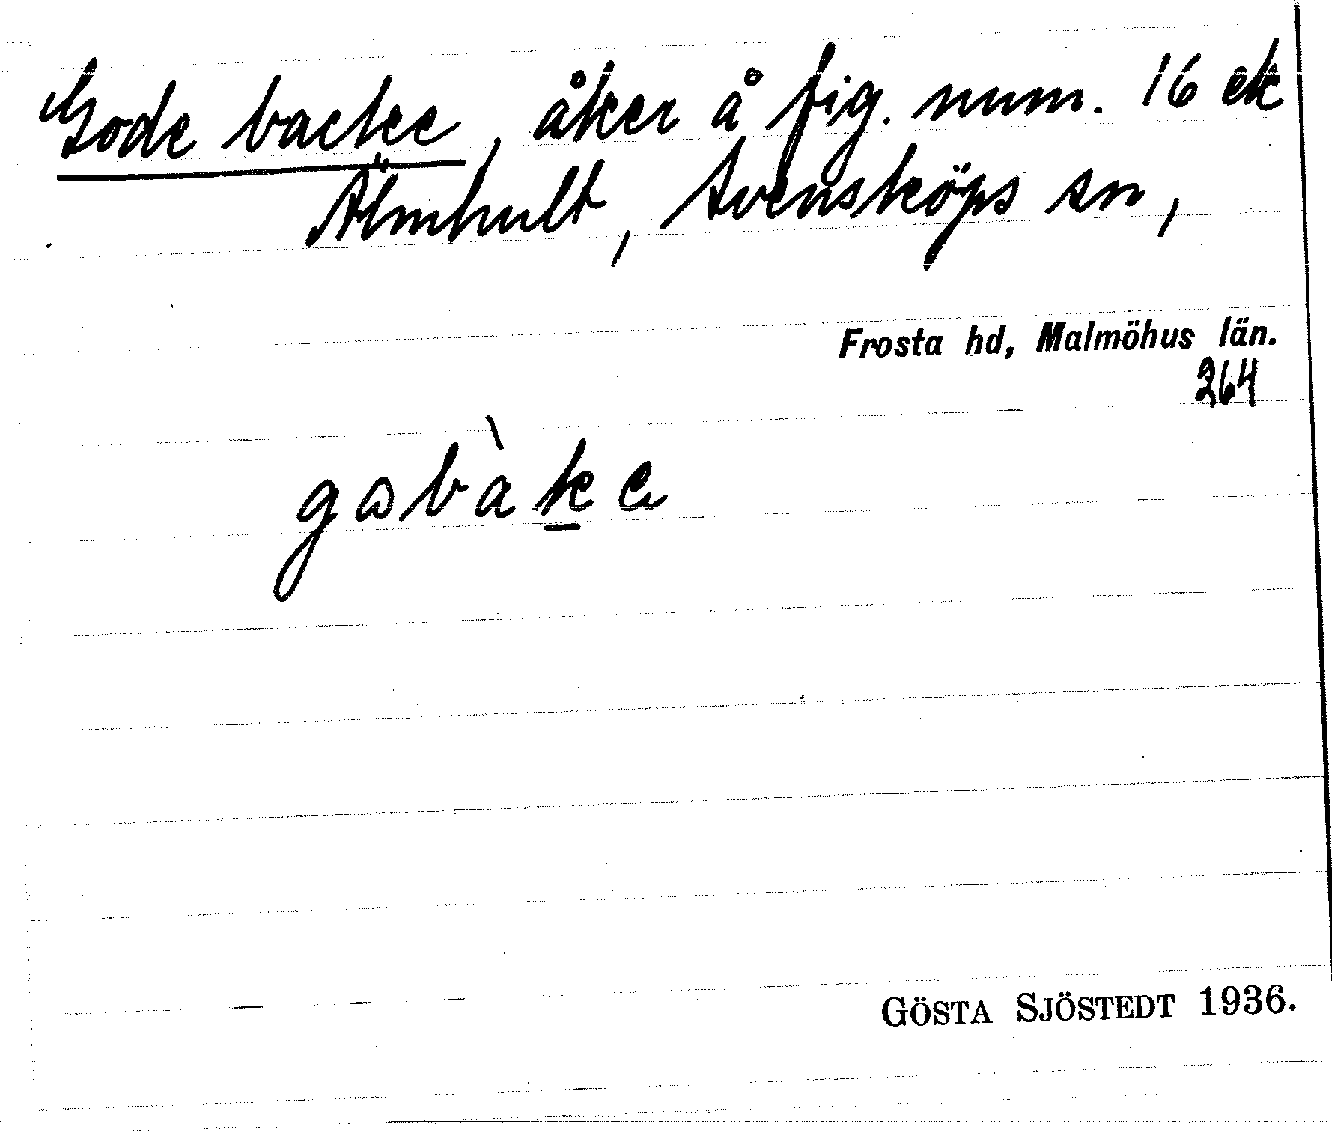 Gode backe, åker å fig. num. 16 ek
Älmhult, Svensköps sn,
Frosta hd, Malmöhus län.
264
gɷbàke
GÖSTA SJÖSTEDT 1936.